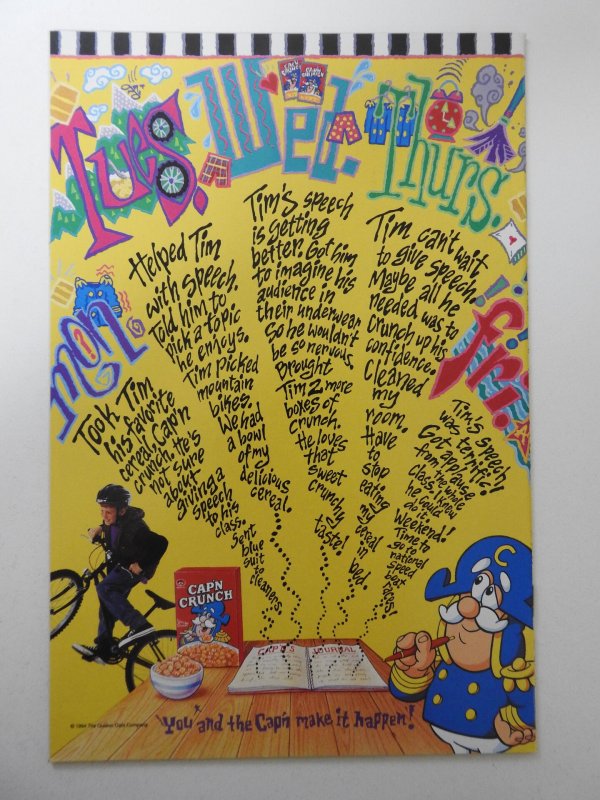 Mon.
Tues.
Wed.
Thurs.
Fri.
Took Tim
his favorite
cereal Cap'n
Crunch. He's
not sure
about
giving a
speech
to his
class.
Sent
blue
suit
to
cleaners.
Helped Tim
with speech.
Told him to
pick a topic
he enjoys.
Tim picked
mountain
bikes.
We had
a bowl
of my
delicious
cereal.
Tim's speech
is getting
better. Got him
to imagine his
audience in
their underwear
so he wouldn't
be so nervous.
Brought
Tim 2 more
boxes of
Crunch.
He loves
that
sweet
crunchy
taste!
Tim can't wait
to give speech.
Maybe all he
needed was to
Crunch up his
confidence.
Cleaned
my
room.
Have
to
stop
eating
my
cereal in
bed.
Tim's speech
was terrific!
Got applause
from the whole
class. I knew
he could
do it.
Weekend.
Time to
go to
national
speed
boat
races!
CAP'N
CRUNCH
CAP'N'S JOURNAL
C
© 1994 The Quaker Oats Company
"You" and the Cap'n make it happen!